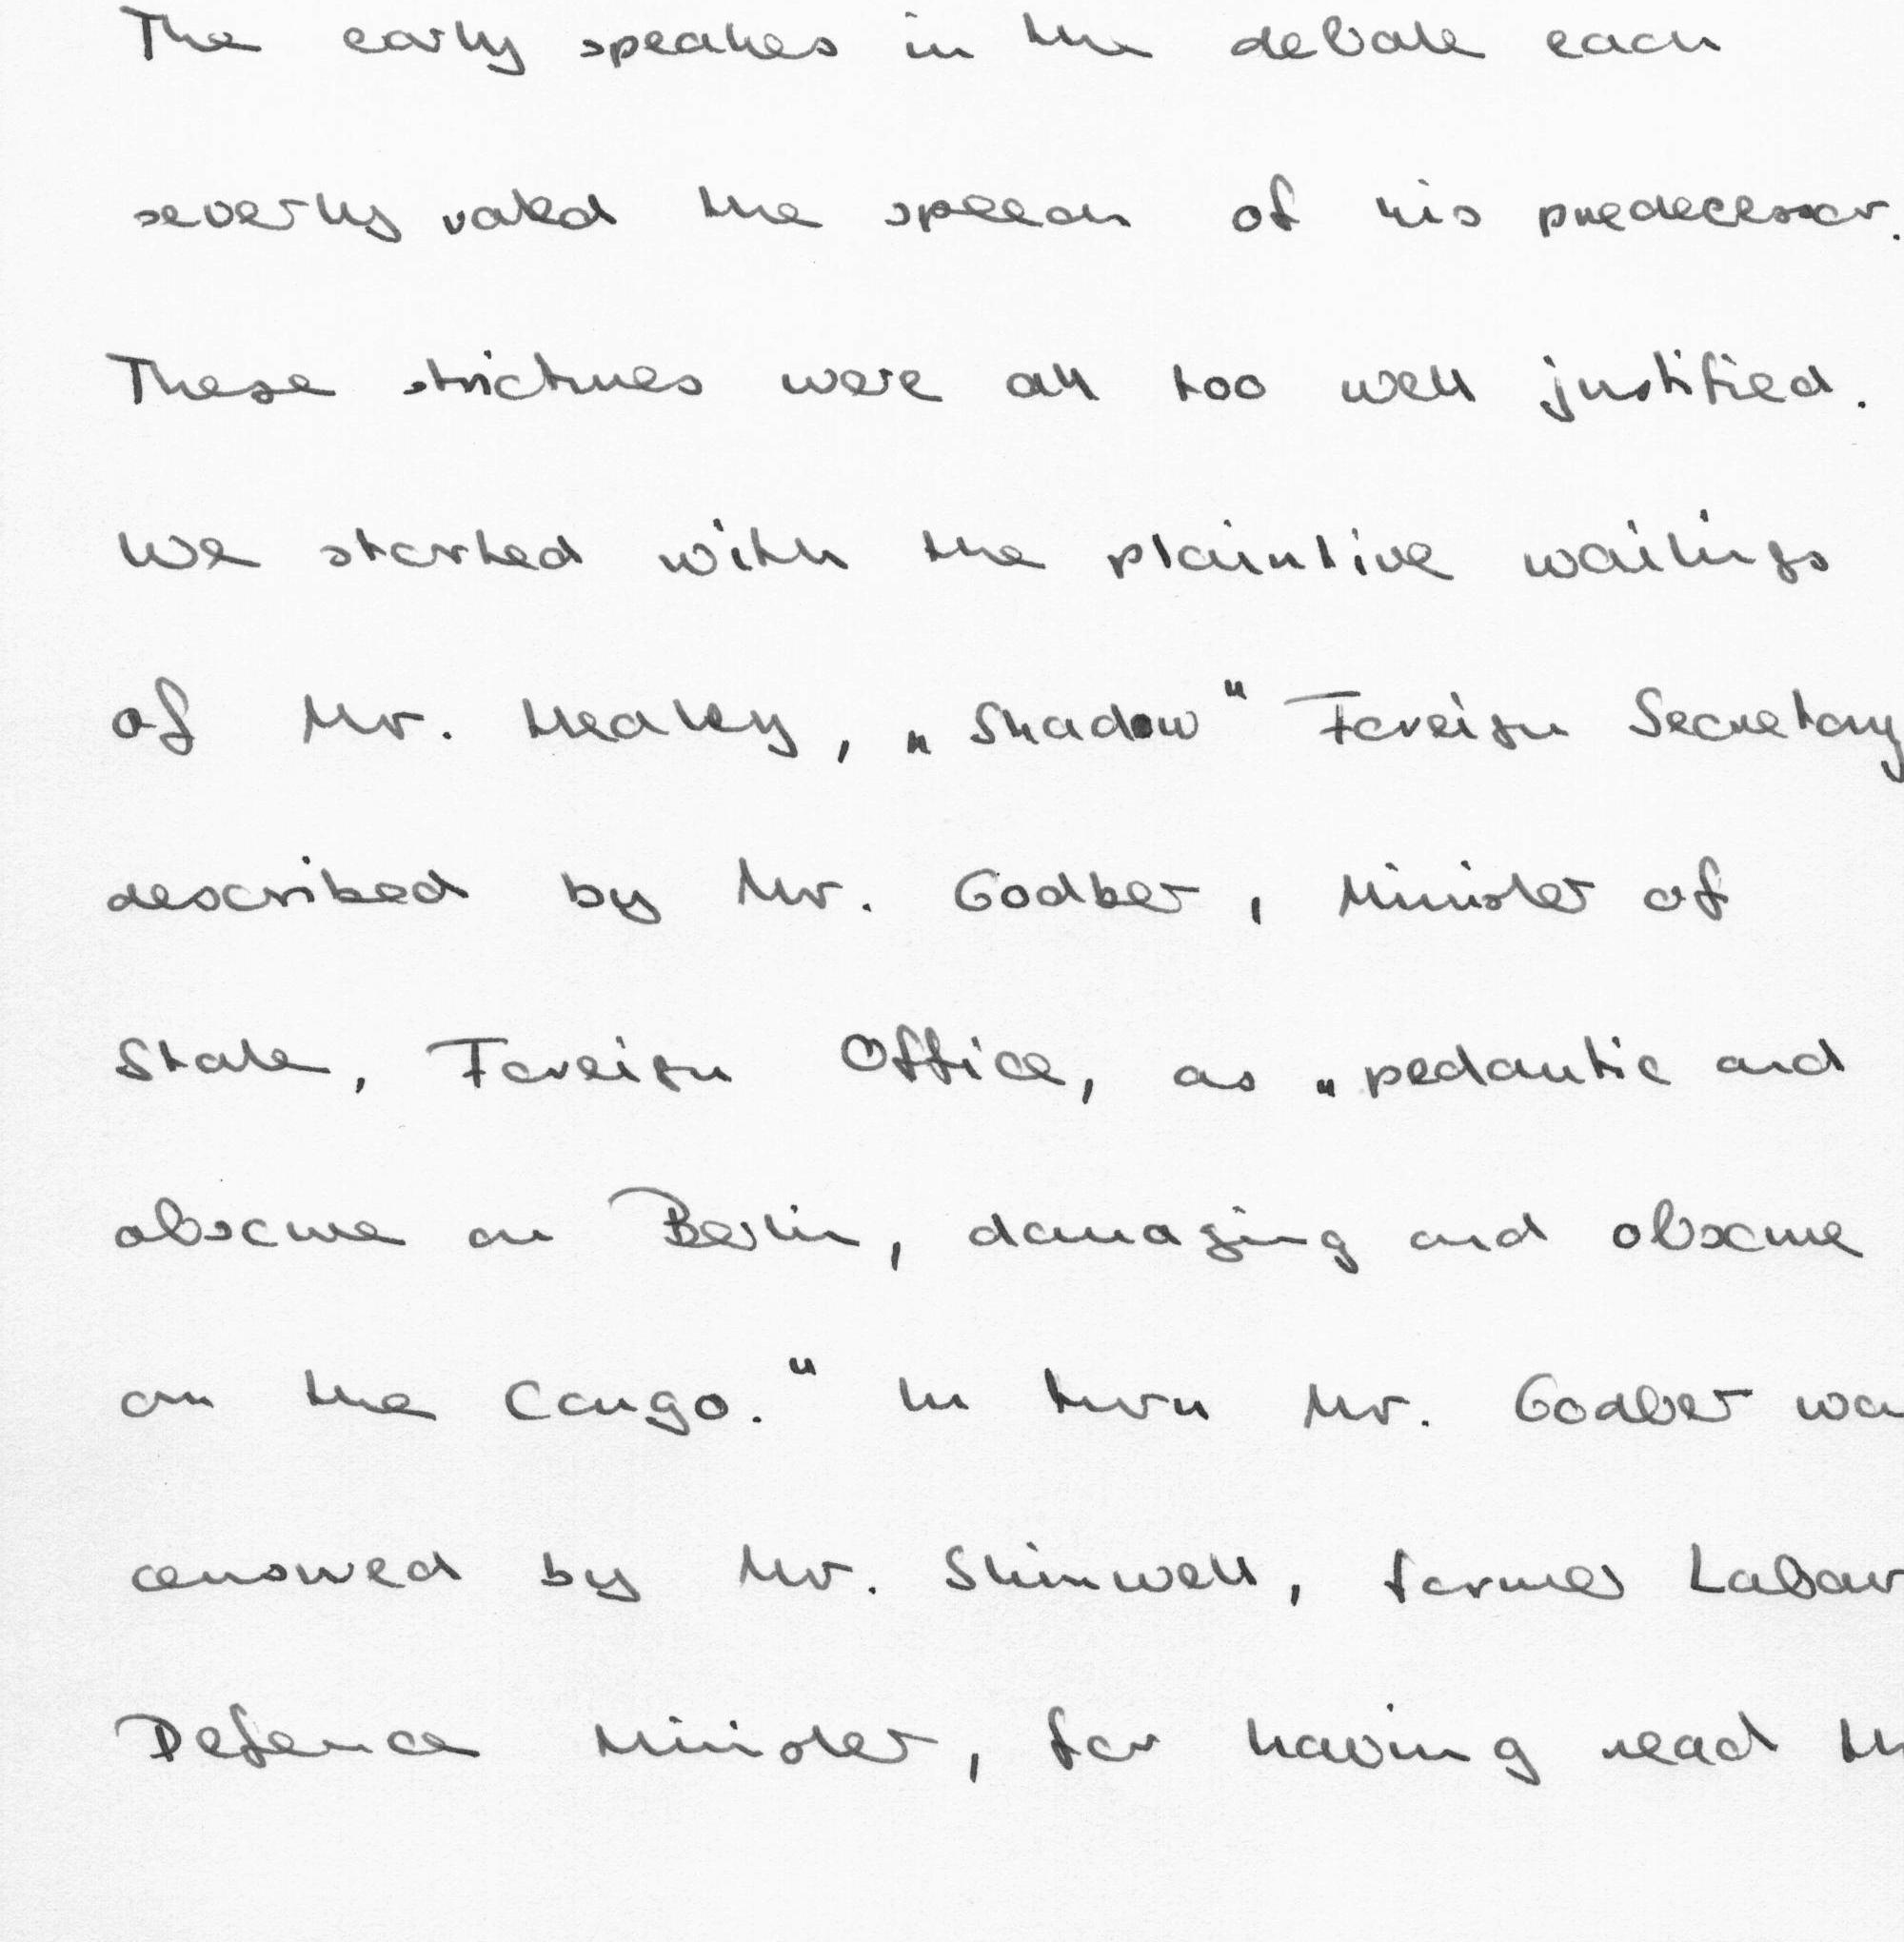 The early speakers in the debate each
severly rated the speech of his predecessor.
These strictures were all too well justified.
We started with the plaintive wailings
of Mr. Healey, „Shadow" Foreign Secretary
described by Mr. Godber, Minister of
State, Foreign Office, as „pedantic and
obscure on Berlin, damaging and obscure
on the Congo." In turn Mr. Godber wa
censured by Mr. Shinwell, former Labour
Defence Minister, for having read th